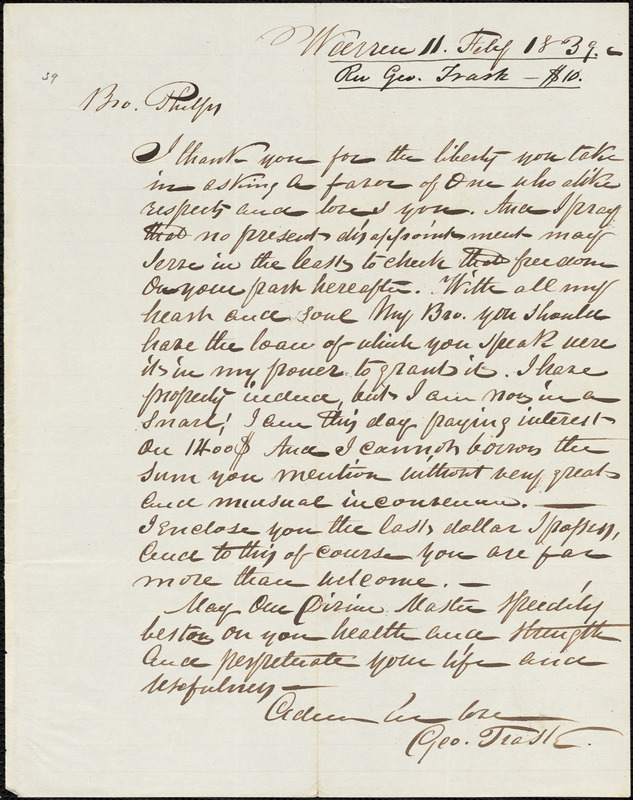 Warren 11. Feby 1839.
Rev Geo. Trask — $10.
39
Bro. Phelps
I thank you for the liberty you take
in asking a favor of one who alike
respects and loves you. And I pray
that no present disappointment may
serve in the least to check that freedom
on your part hereafter. With all my
heart and soul My Bro. you should
have the loan of which you speak were
it in my power to grant it. I have
property indeed, but I am now in a
snarl! I am this day paying interest
on 1400$ And I cannot borrow the
sum you mention without very great
and unusual inconvenience. —
I enclose you the last dollar I possess,
and to this of course you are far
more than welcome. —
May Our Divine Master speedily
bestow on you health and strength
and perpetuate your life and
usefulness —
Adieu in love
Geo. Trask.